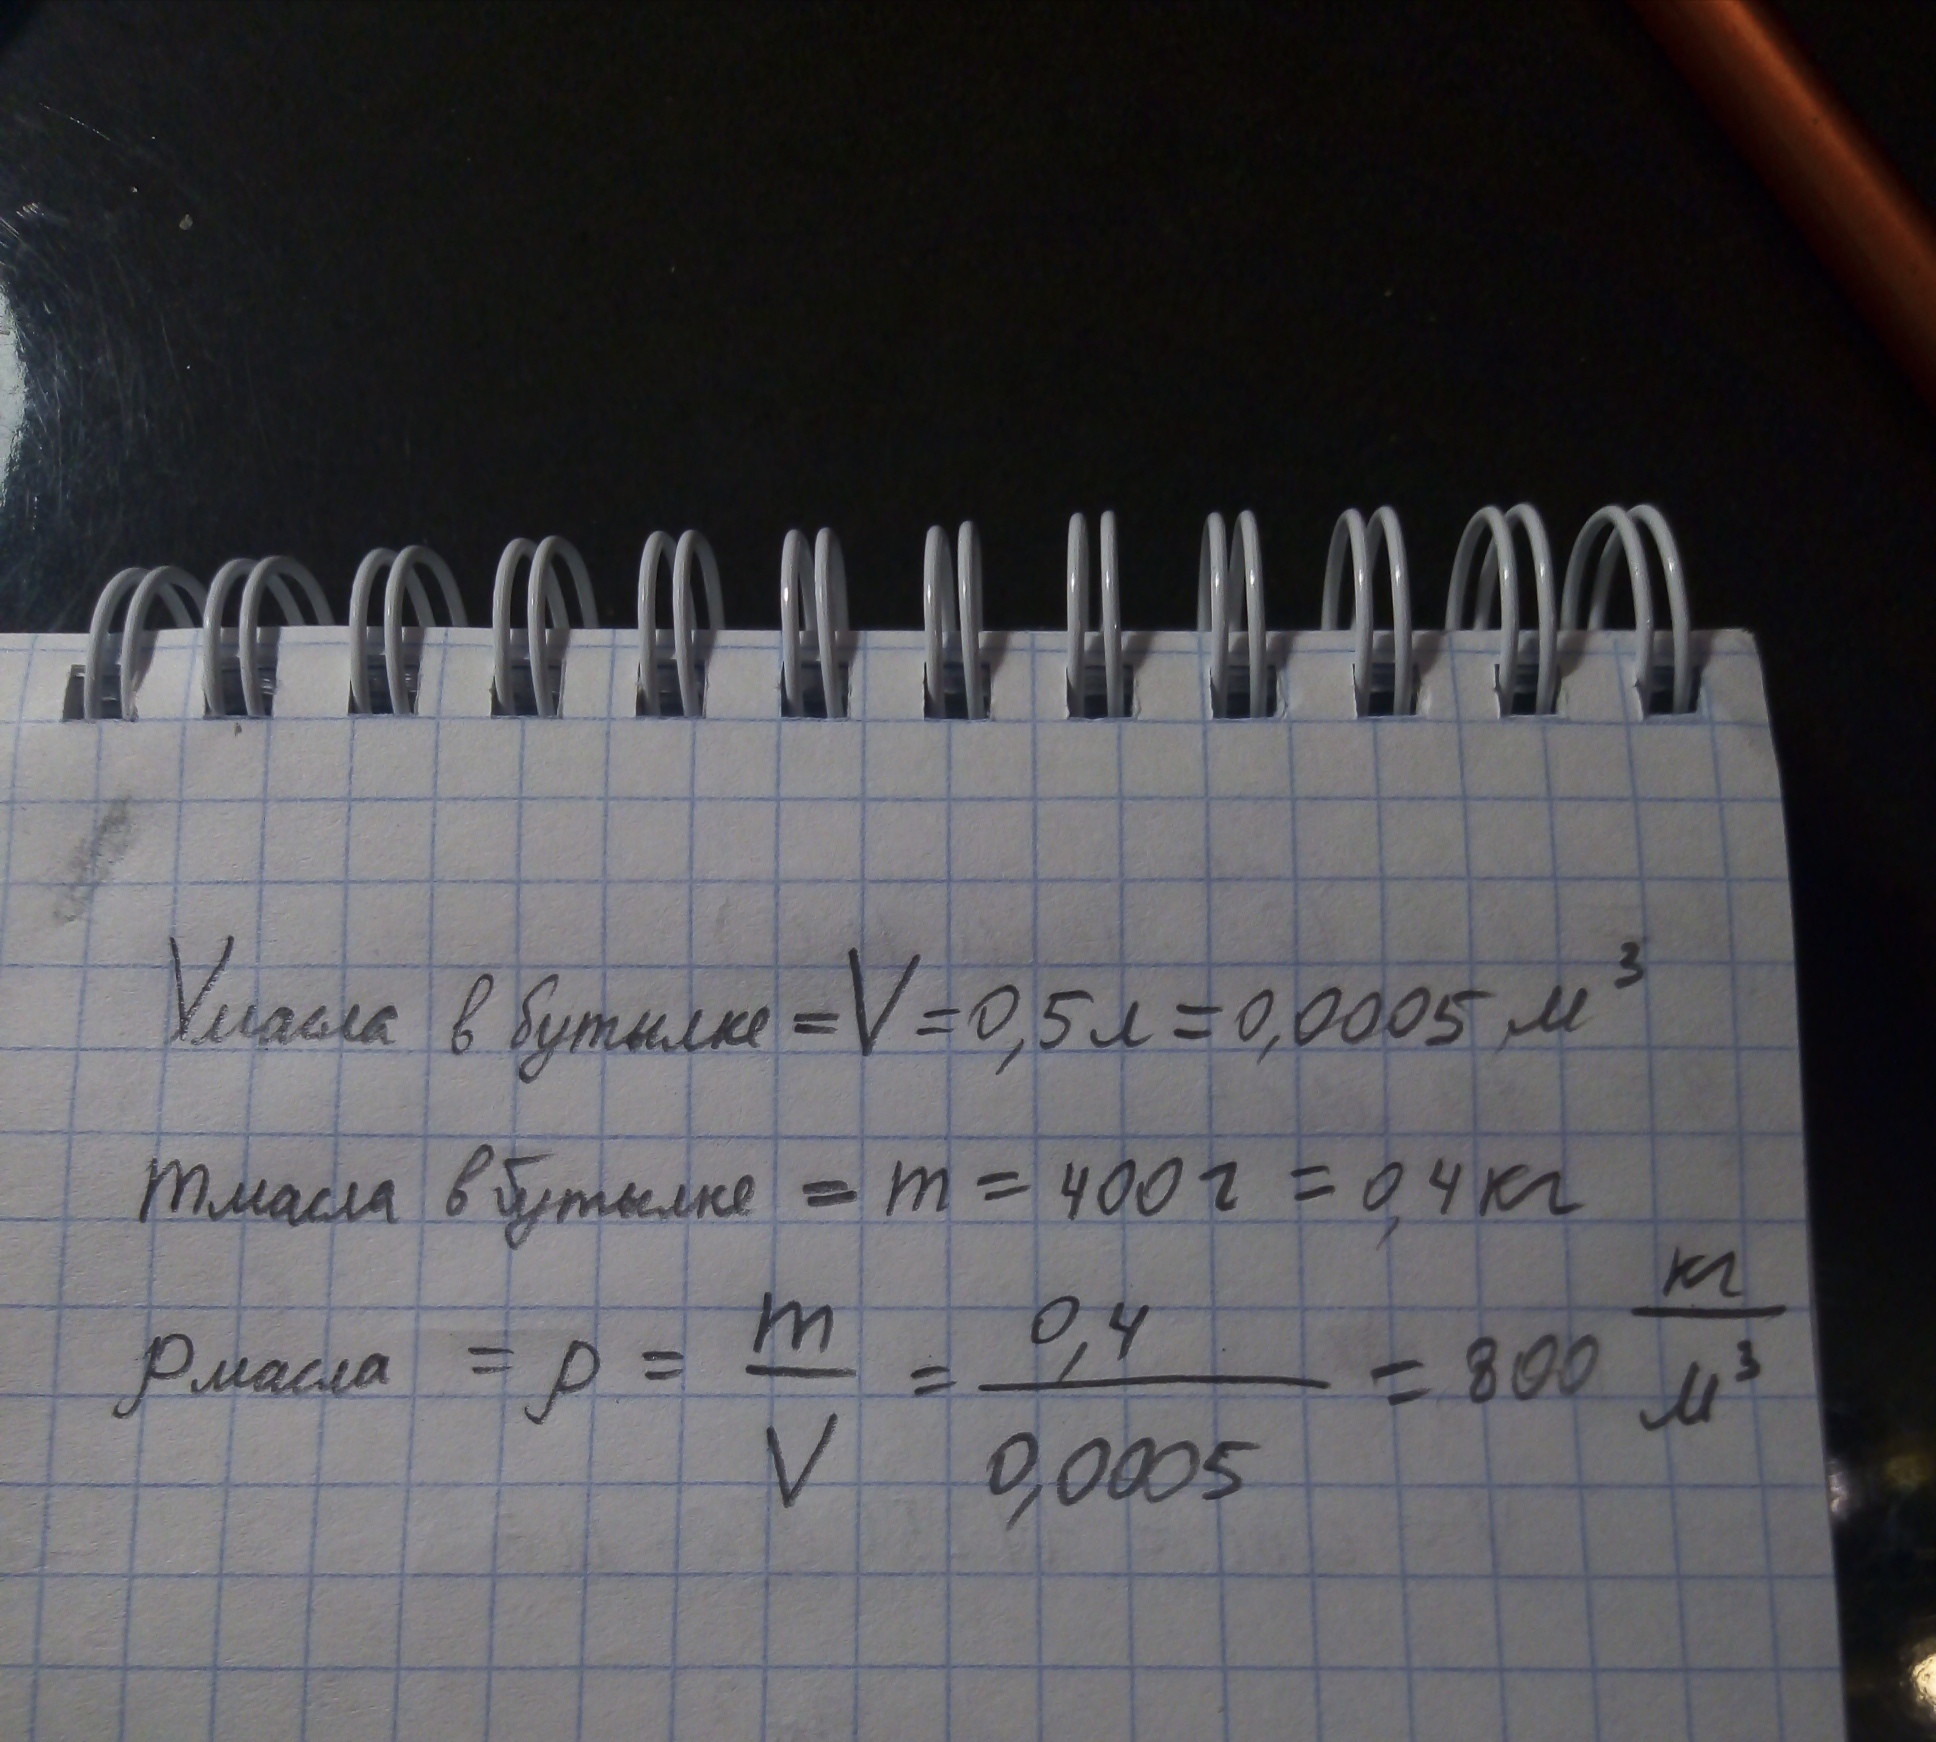 Vмасла в бутылке = V = 0,5 л = 0,0005 м³
mмасла в бутылке = m = 400 г = 0,4 кг
ρмасла = ρ = m/V = 0,4/0,0005 = 800 кг/м³